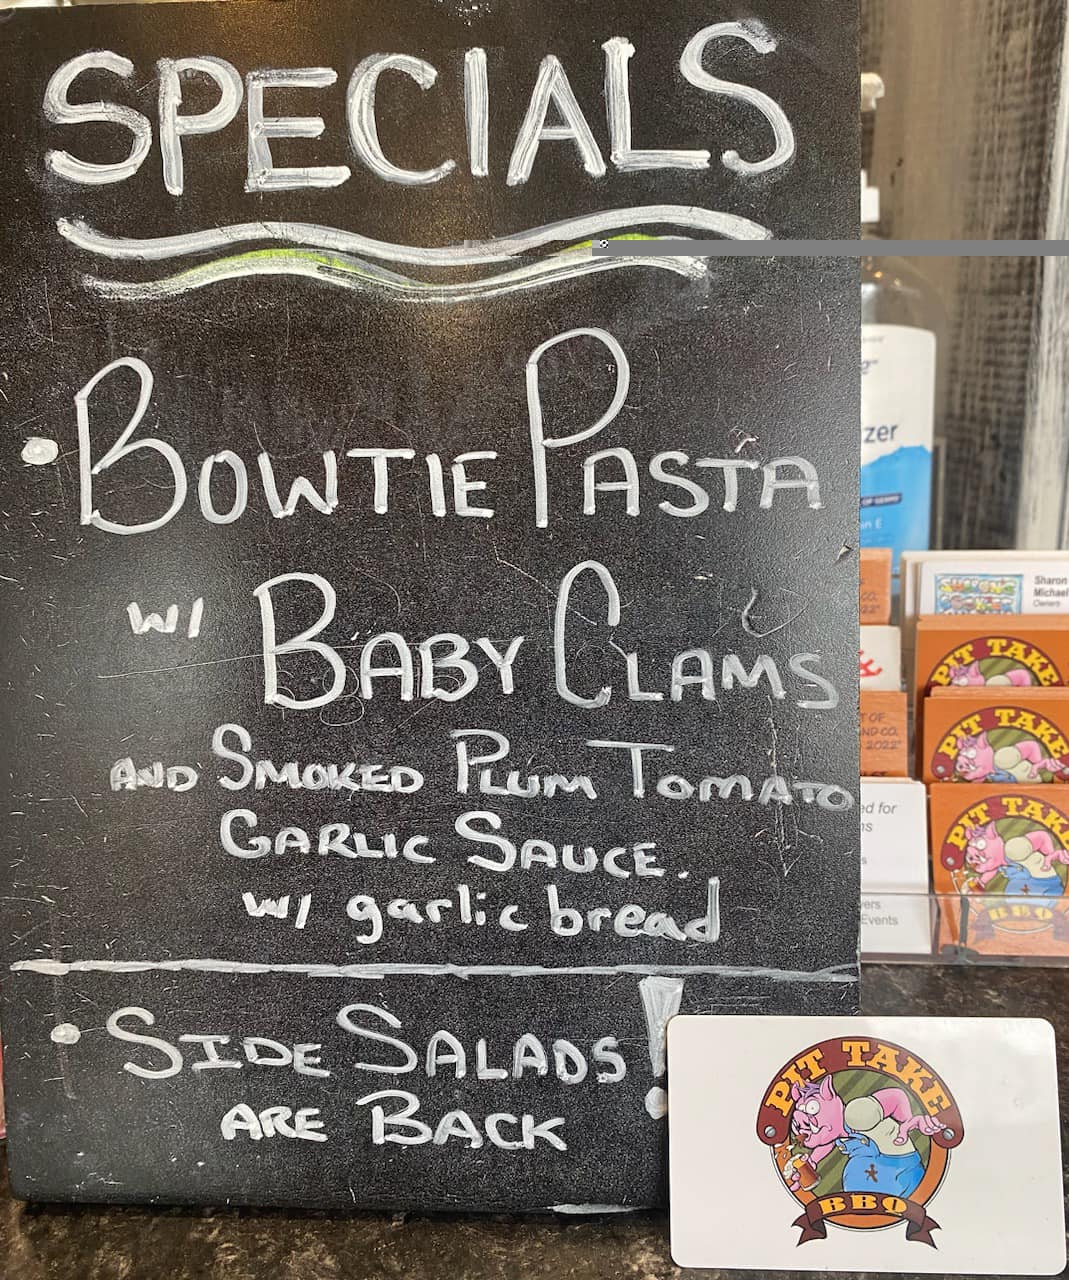 SPECIALS
• BOWTIE PASTA
W/ BABY CLAMS
AND SMOKED PLUM TOMATO
GARLIC SAUCE.
w/ garlic bread
• SIDE SALADS!
ARE BACK
PIT TAKE
BBQ
zer
OF GERMS
in E
Sharon
Michael
Owners
CO.
22"
PIT TAKE
T OF
ND CO.
2022"
PIT TAKE
ed for
ns
s
ers
Events
PIT TAKE
BBQ